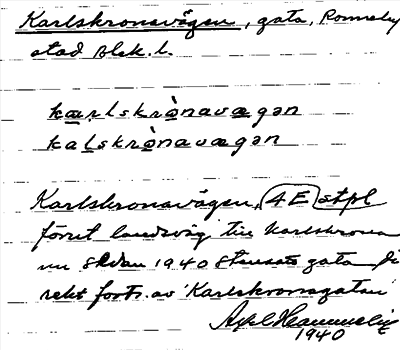 Karlskronavägen, gata, Ronneby
stad Blek. l.
kærlskrònavægən
kaļskrònavægən
Karlskronavägen, 4E stpl
förut landsväg till Karlskrona
nu sedan 1940 stadens gata di
rekt forts. av "Karlskronagatan"
Axel
1940